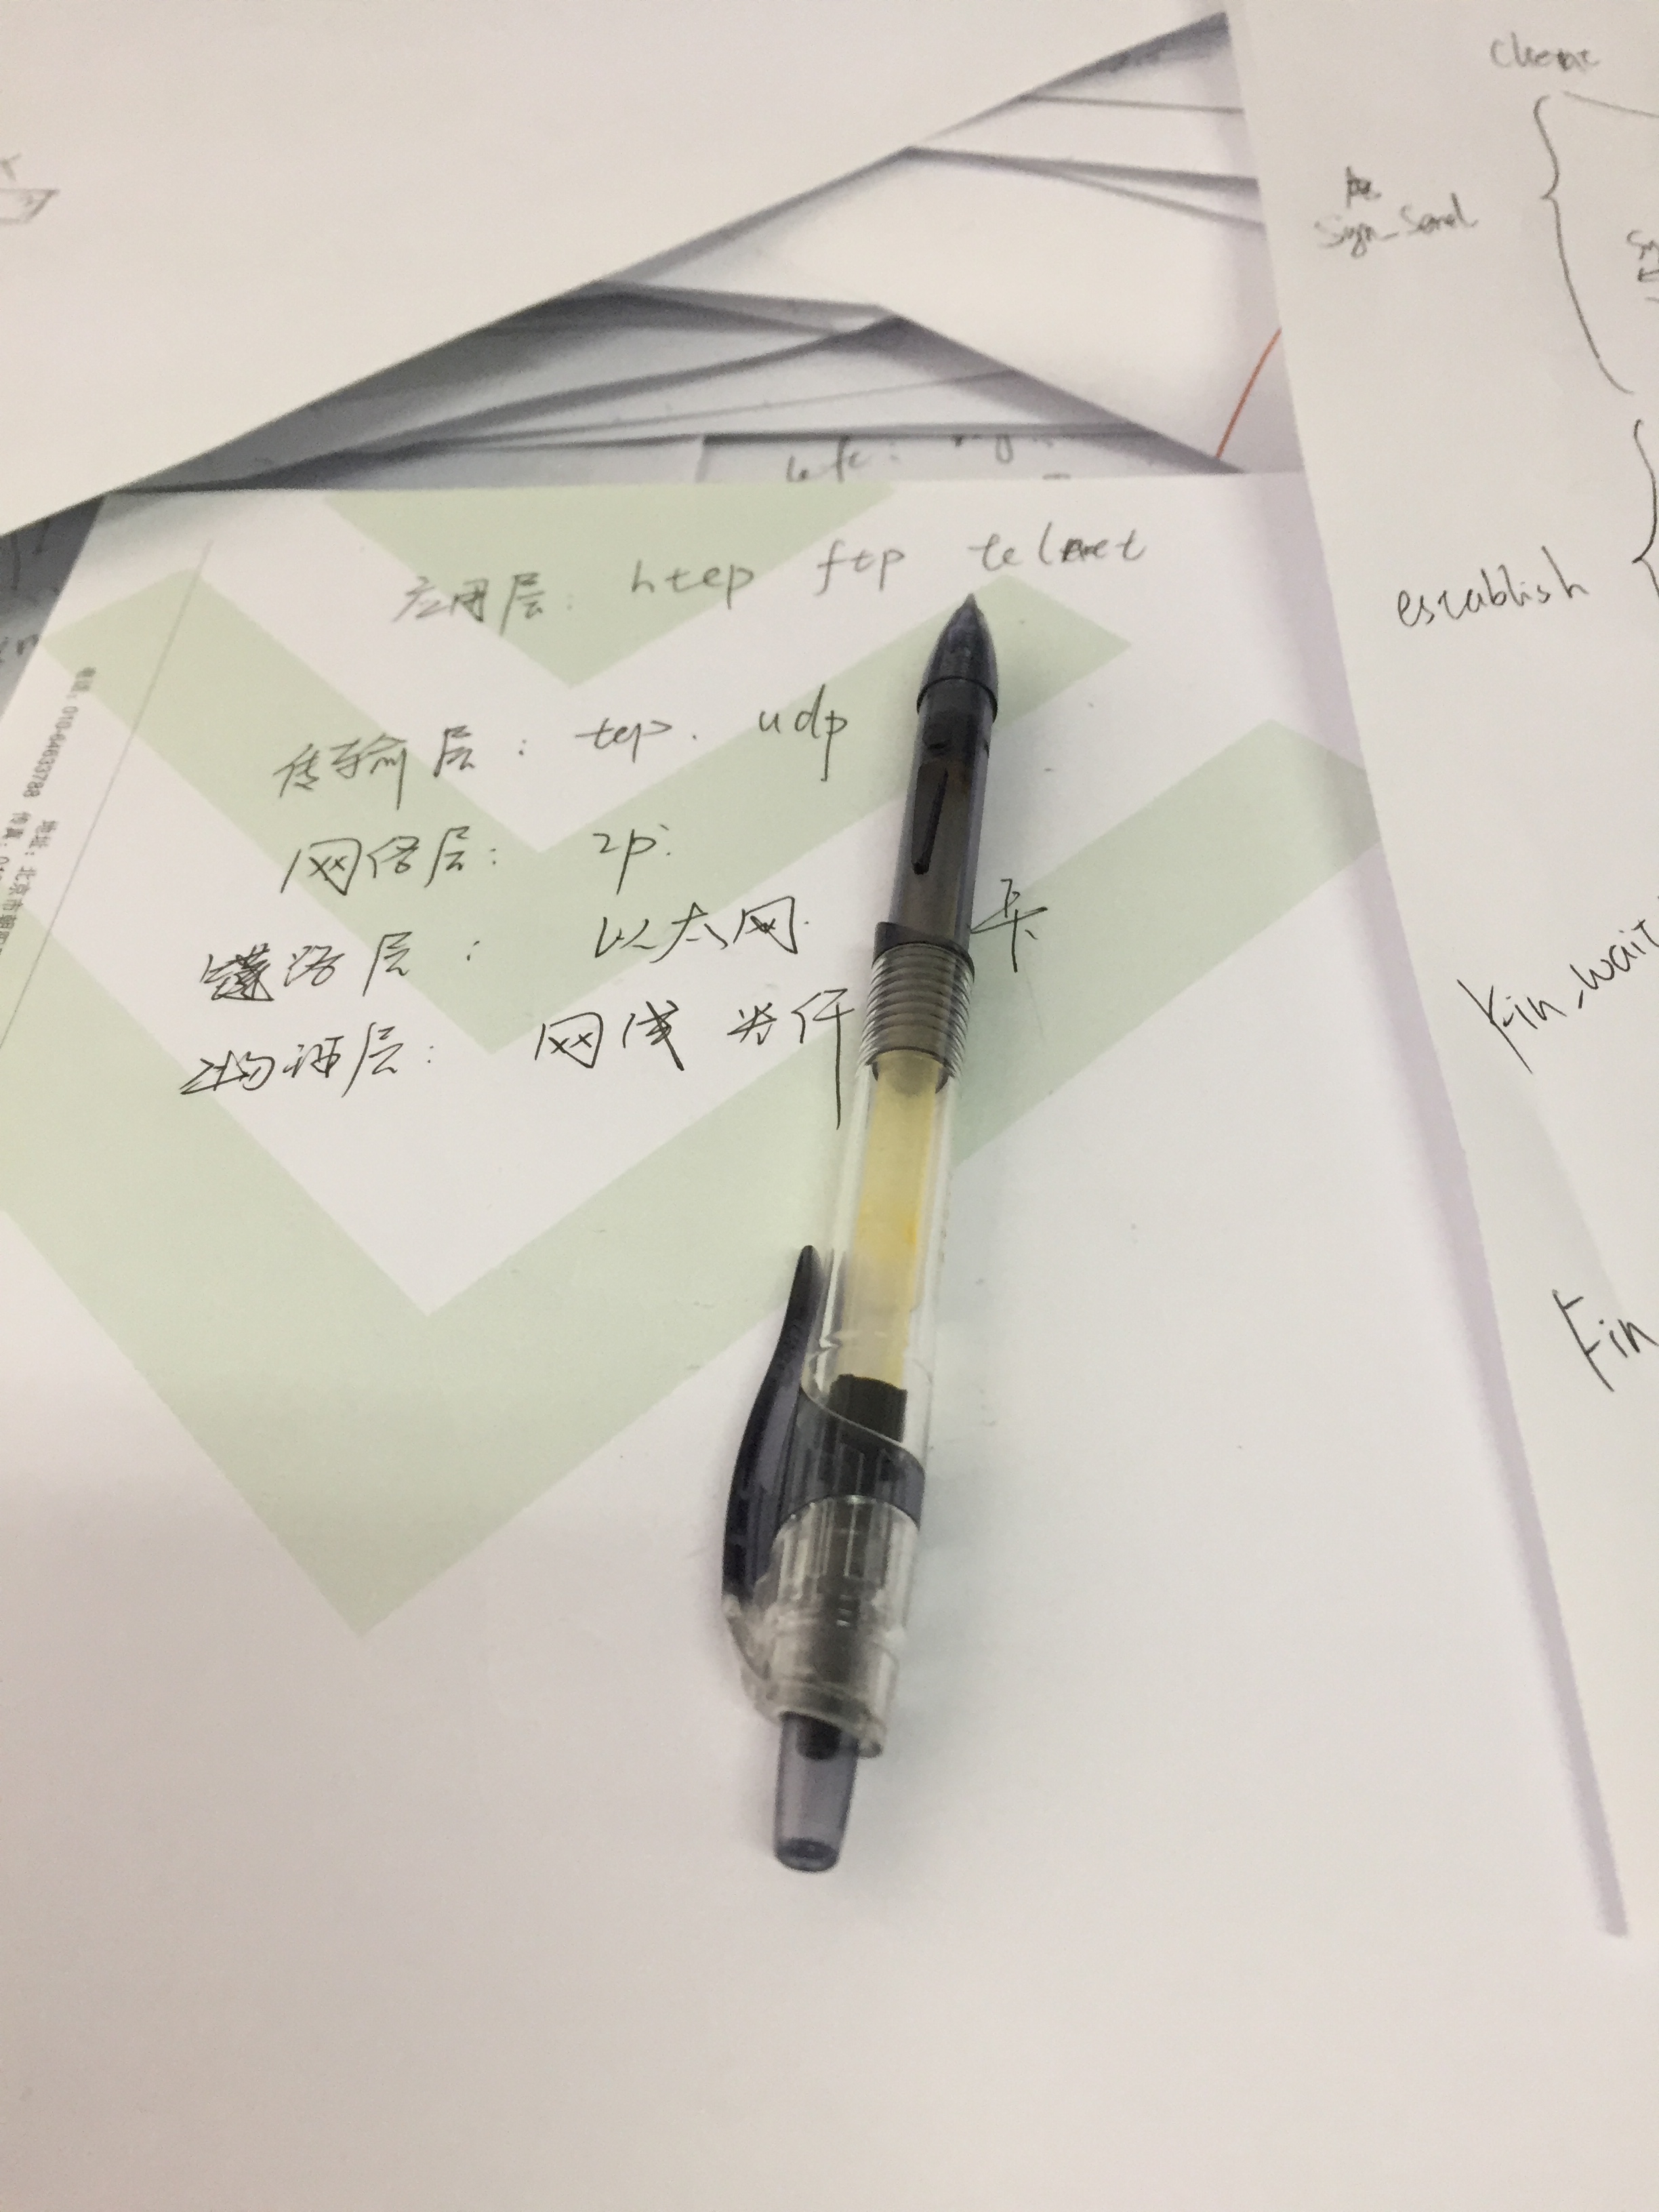 应用层: http ftp telnet
传输层: tcp. udp
网络层: ip.
链路层: 以太网. 卡
物理层: 网线 光纤
电话: 010-64633788
地址: 北京市朝阳
传真:
client
syn_send
establish
Fin_wait
Fin